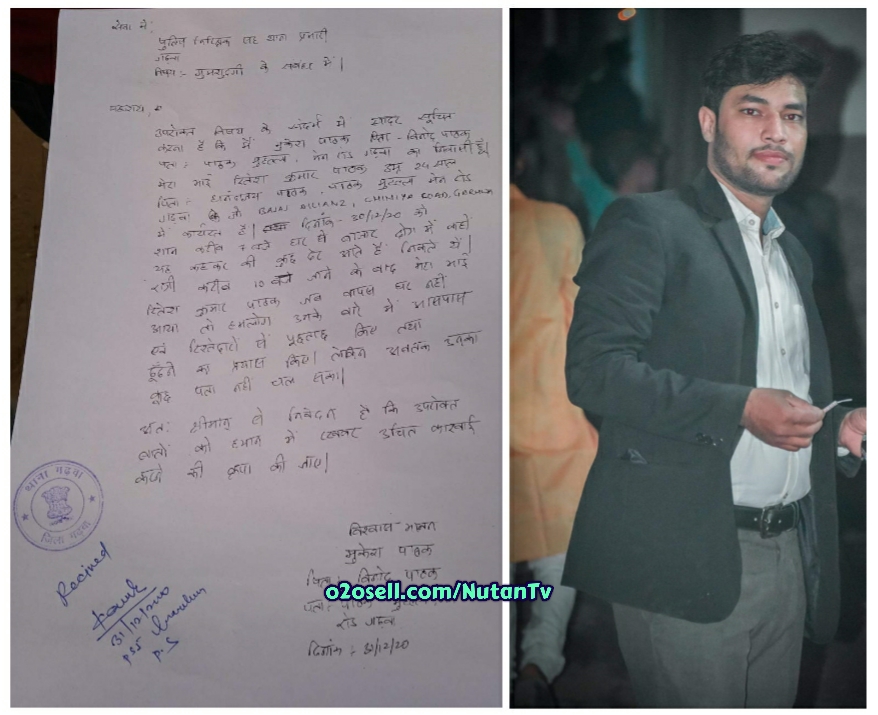 सेवा में,
पुलिस निरीक्षक सह थाना प्रभारी
गढ़वा
विषय :- गुमशुदगी के संबंध में।
महाशय,
उपरोक्त विषय के संदर्भ में सादर सूचित
करना है कि मैं मुकेश पाठक पिता - विनोद पाठक
पता :- पाठक मुहल्ला, मेन रोड गढ़वा का निवासी हूँ।
मेरा भाई रितेश कुमार पाठक उम्र 24 साल
पिता :- पाठक, पाठक मुहल्ला मेन रोड
गढ़वा जो BAJAJ ALLIANZ, CHINIYA ROAD, GARHWA
में कार्यरत है। दिनांक - 30/12/20 को
शाम करीब 7 बजे घर से बाजार में कहीं
यह कहकर की कुछ देर आते हैं निकले थे।
करीब 10 बजे जाने के बाद मेरा भाई
रितेश कुमार पाठक जब वापस घर नहीं
आया तो हमलोग उनके बारे में आसपास
एवं रिस्तेदारों से पूछताछ किए तथा
ढूँढने का प्रयास किए। लेकिन अबतक उनका
कुछ पता नहीं चल सका।
अतः श्रीमान् से निवेदन है कि उपरोक्त
बातों को ध्यान में रखकर उचित कारवाई
करने की कृपा की जाए।
थाना गढ़वा
जिला गढ़वा
Recived
31/12/2020
P.S
विश्वास भाजन
मुकेश पाठक
पिता : विनोद पाठक
पता : पाठक
रोड गढ़वा
दिनांक : 30/12/20
o2osell.com/NutanTv